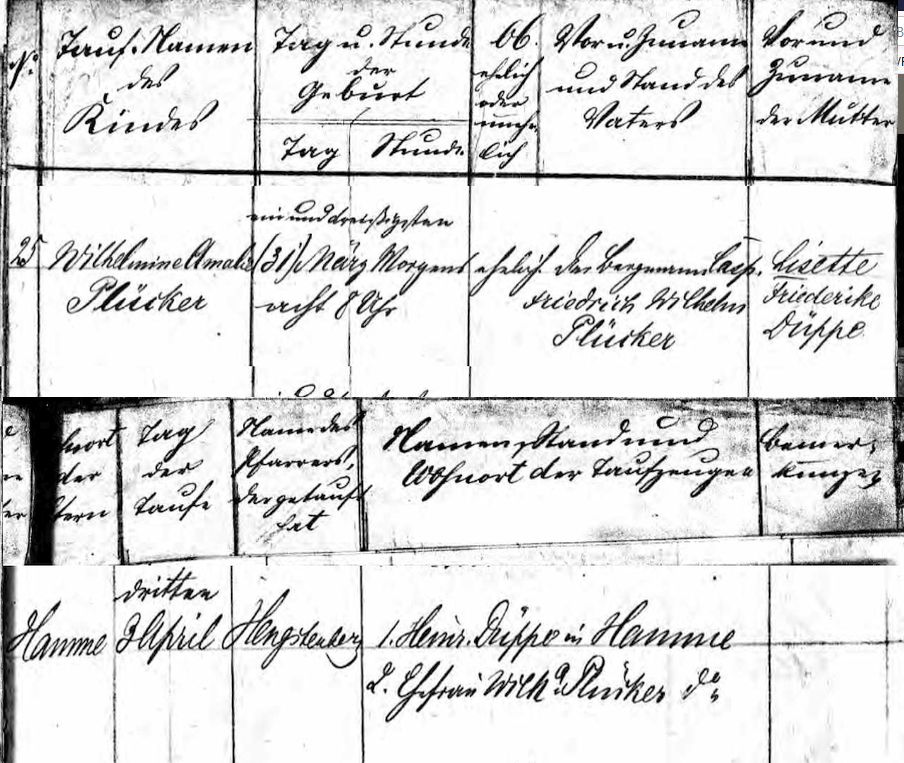 No.
Tauf-Namen
des
Kindes
Tag u. Stunde
der
Geburt
Tag Stunde
Ob
ehelich
oder
unehe-
lich
Vor u. Zuname
und Stand des
Vaters
Vor und
Zuname
der Mutter
25
Wilhelmine Amalie
Plücker
ein und dreißigsten
(31) März Morgens
acht 8 Uhr
ehelich
des Bergmanns Casp.
Friedrich Wilhelm
Plücker
Lisette
Friederike
Düppe
hnort
der
tern
Tag
der
Taufe
Name des
Pfarrers,
der getauft
hat
Namen, Stand und
Wohnort der Taufzeugen
Bemer-
kungen
Hamme
dritten
3 April
Hengstenberg
1. Heinr. Düppe in Hamme
2. Ehefrau Wilh. Plücker do